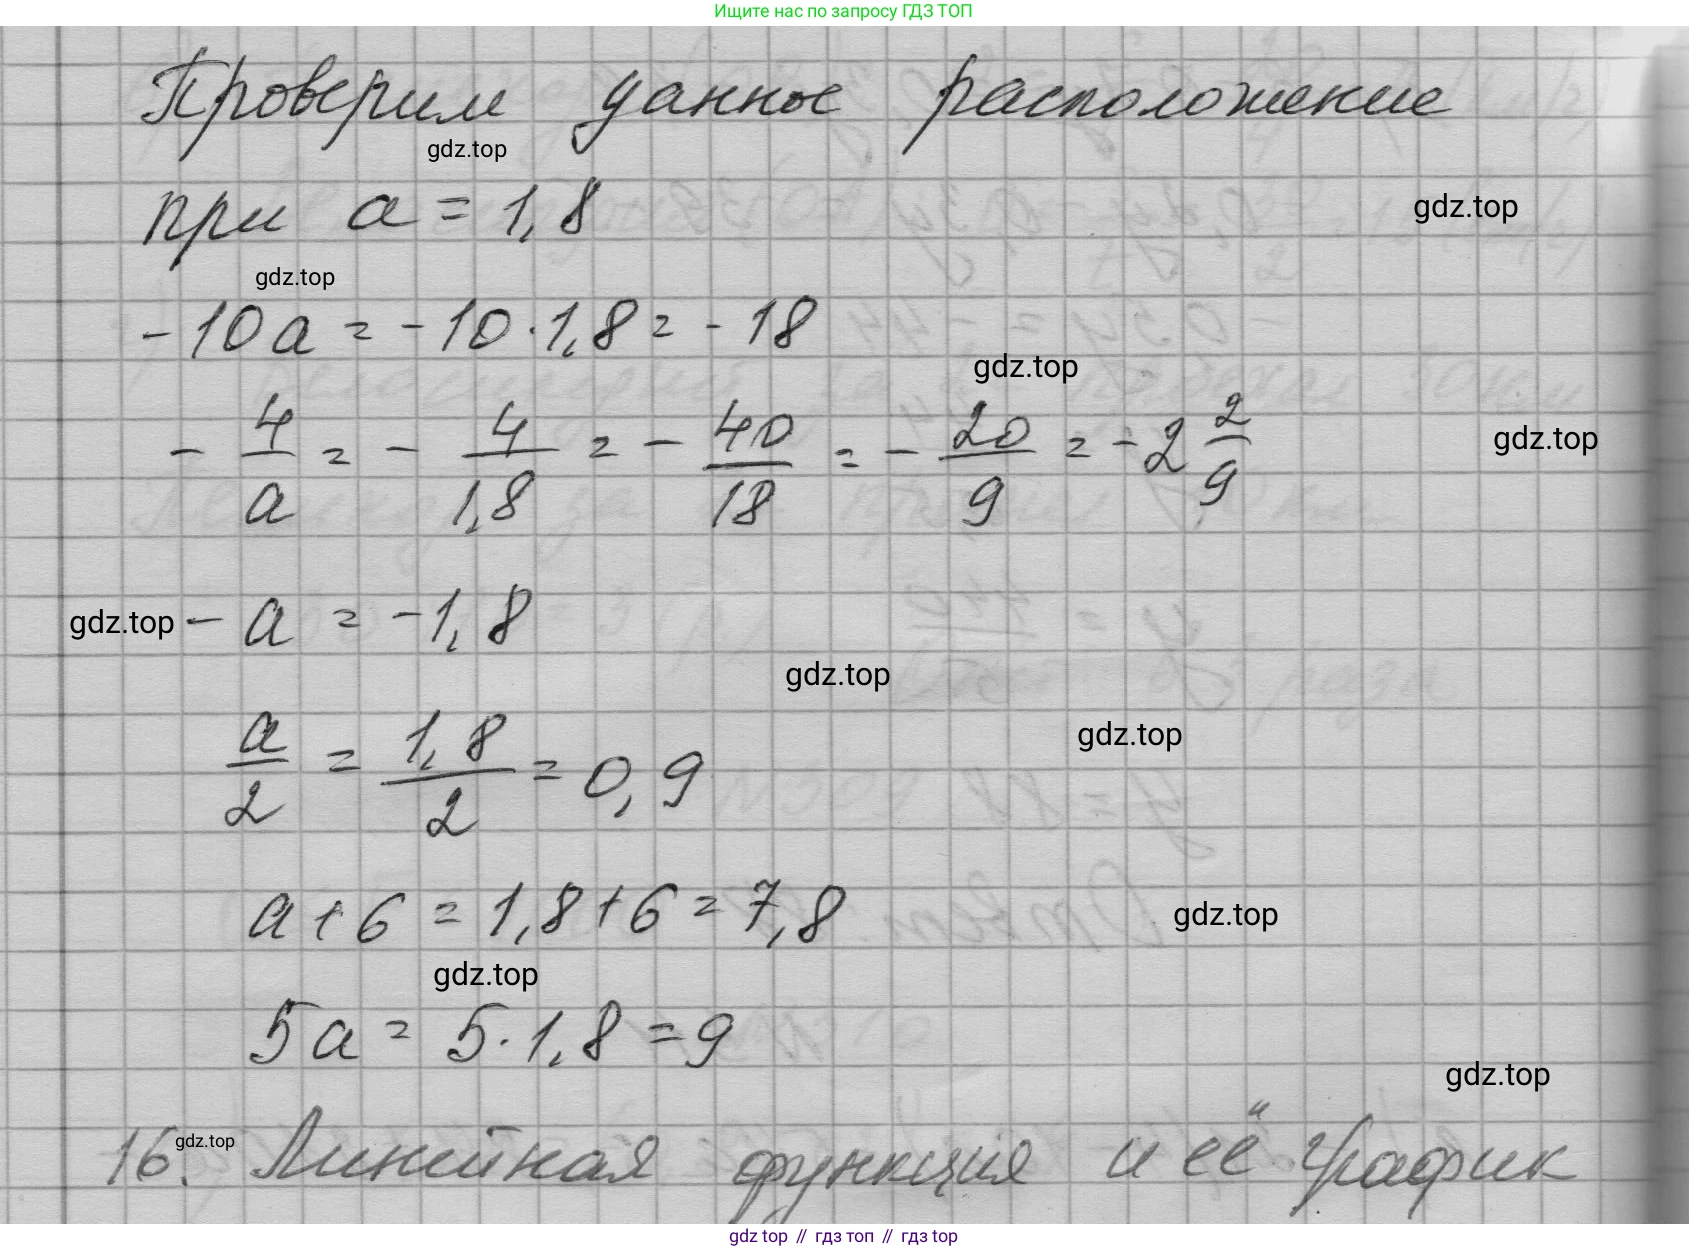 Ищите нас по запросу ГДЗ ТОП
Проверим данное расположение
gdz.top
при a = 1,8
gdz.top
gdz.top
-10a = -10·1,8 = -18
gdz.top
- 4/a = - 4/1,8 = - 40/18 = - 20/9 = -2 2/9
gdz.top
gdz.top - a = -1,8
gdz.top
a/2 = 1,8/2 = 0,9
gdz.top
a + 6 = 1,8 + 6 = 7,8
gdz.top
gdz.top
5a = 5·1,8 = 9
gdz.top
16. Линейная функция и её график
gdz.top
gdz top // гдз топ // гдз top